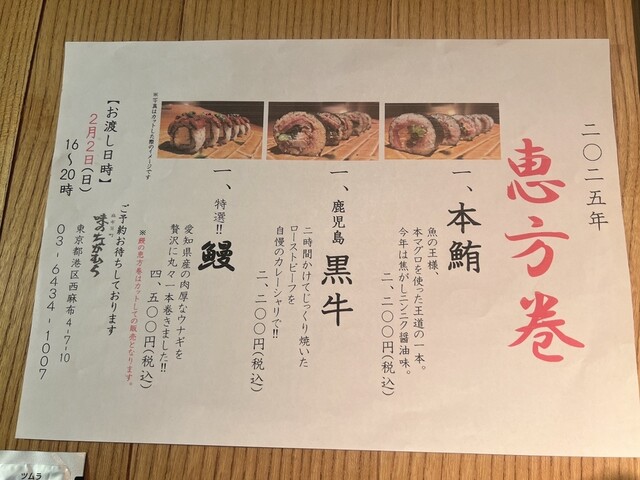 二〇二五年
恵方巻
一、本鮪
魚の王様、
本マグロを使った王道の一本。
今年は焦がしニンニク醤油味。
二、二〇〇円(税込)
一、鹿児島 黒牛
二時間かけてじっくり焼いた
ローストビーフを
自慢のカレーシャリで!!
二、二〇〇円(税込)
一、特選!! 鰻
愛知県産の肉厚なウナギを
贅沢に丸々一本巻きました!!
四、五〇〇円(税込)
※鰻の恵方巻はカットしての販売となります。
※写真はカットした際のイメージです
【お渡し日時】
2月2日(日)
16〜20時
ご予約お待ちしております
味のなかむら
東京都港区西麻布4-7-10
03-6434-1007
ツムラ